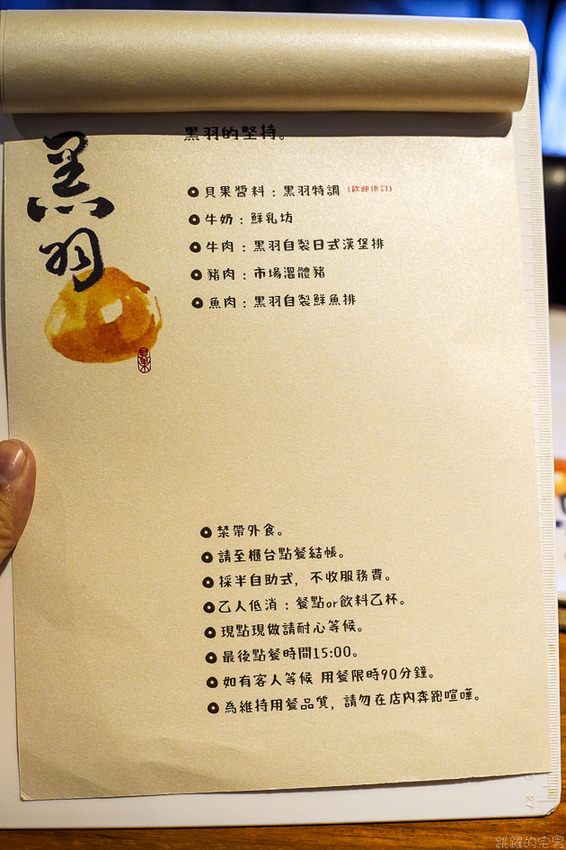 黑羽
貝果
黑羽的堅持。
貝果醬料：黑羽特調（歡迎預訂）
牛奶：鮮乳坊
牛肉：黑羽自製日式漢堡排
豬肉：市場溫體豬
魚肉：黑羽自製鮮魚排
禁帶外食。
請至櫃台點餐結帳。
採半自助式，不收服務費。
乙人低消：餐點or飲料乙杯。
現點現做請耐心等候。
最後點餐時間15:00。
如有客人等候 用餐限時90分鐘。
為維持用餐品質，請勿在店內奔跑喧嘩。
27
跳躍的宅男